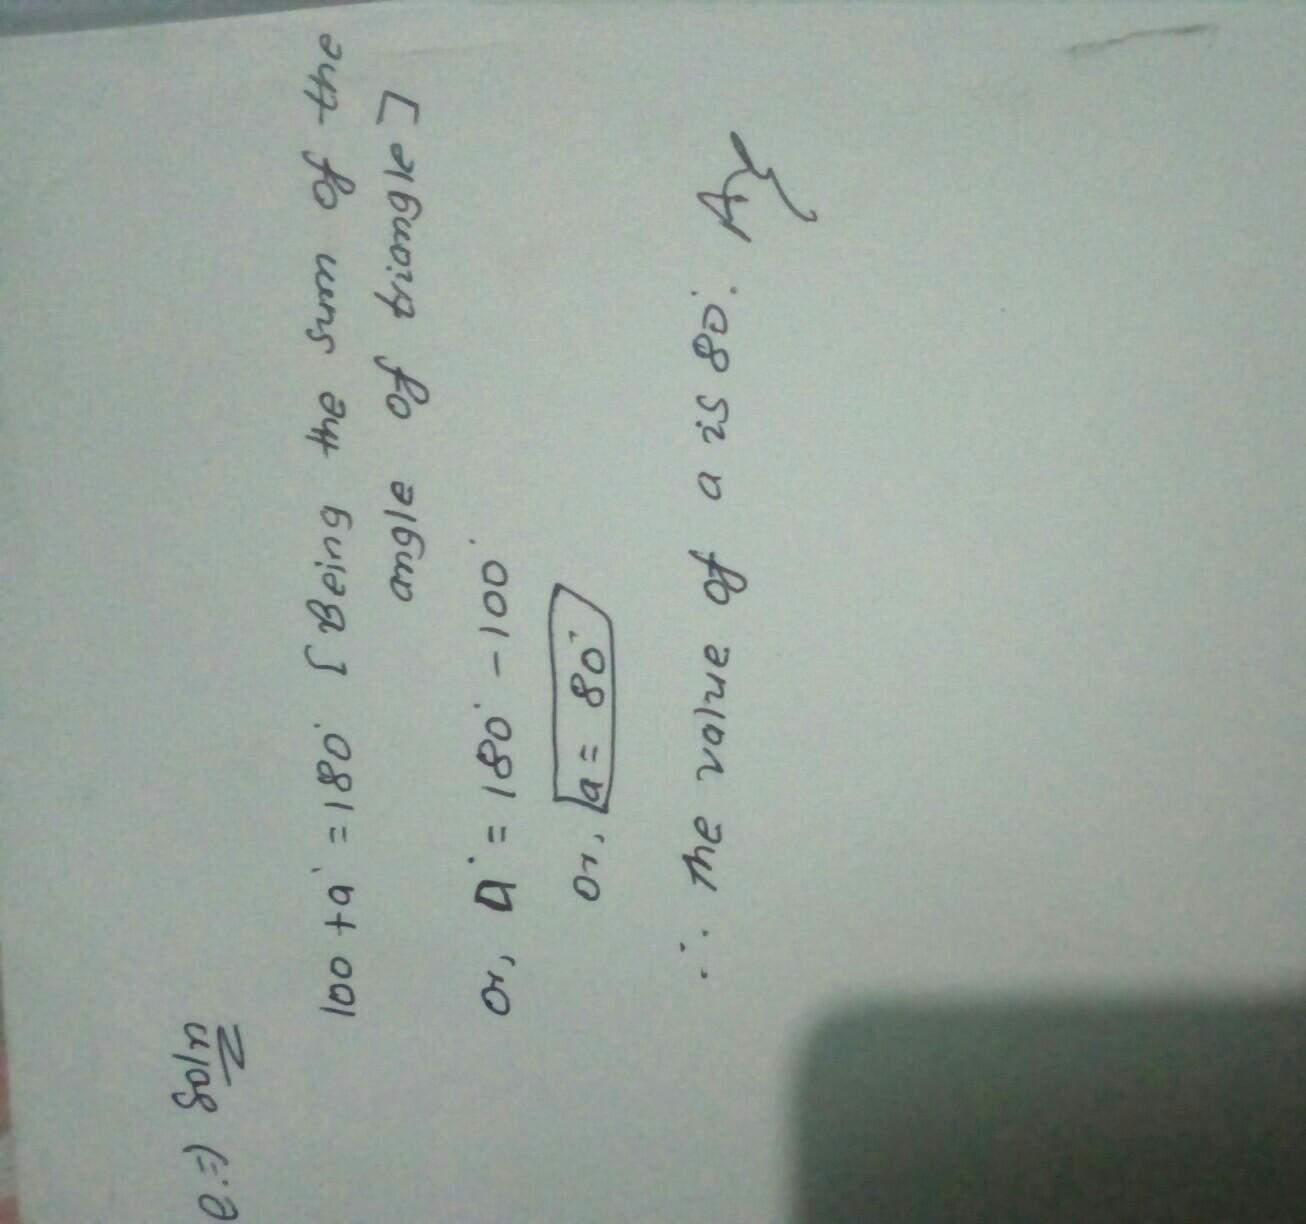 Q:-) Sol^n
100 + a° = 180° [Being the sum of the
angle of triangle]
or, a° = 180° - 100°
or, a = 80°
∴ The value of a is 80°. A